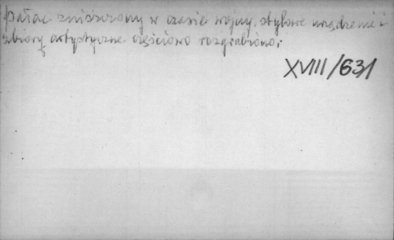 Pałac zniszczony w czasie wojny, stylowe urządzenie i
zbiory artystyczne częściowo rozgrabiono.
XVIII/631